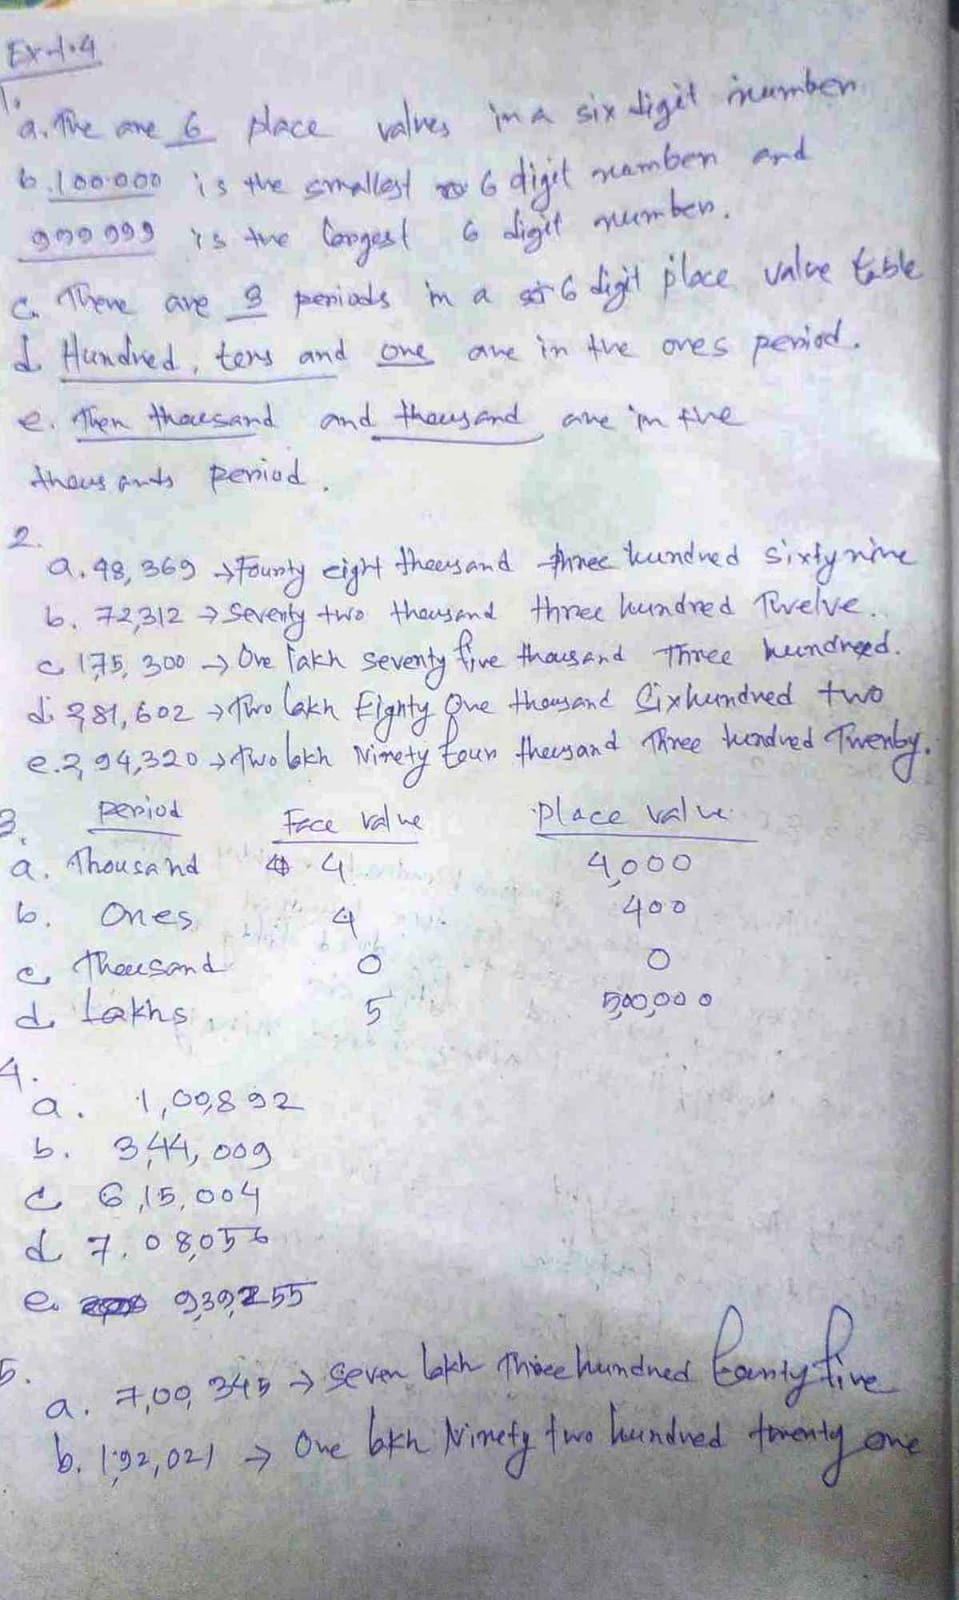 Ex-1.4
1.
a. The are 6 place values in a six digit number
b. 100000 is the smallest 6 digit number and
999999 is the largest 6 digit number.
c. There are 3 periods in a 6 digit place value table
d. Hundred, tens and one are in the ones period.
e. Then thousand and thousand are in the
thousants period.
2.
a. 48,369 → Founty eight thousand three hundred sixty nine
b. 72,312 → Seventy two thousand three hundred Twelve.
c 1,75,300 → One lakh seventy five thousand Three hundreed.
d. 2,81,602 → Two lakh Eighty One thousand Six hundred two
e. 2,94,320 → Two lakh Ninety four thousand Three hundred Twenty.
3. period Face value Place value
a. Thousand 4 4,000
b. Ones 4 400
c Thousand 0 0
d. Lakhs 5 5,00,000
4.
a. 1,00,892
b. 3,44,009
c 6,15,004
d 7,08,056
e. 9,39,255
5.
a. 7,00,345 → Seven lakh Three hundred founty five
b. 1,92,021 → One lakh Ninety two hundred twenty one